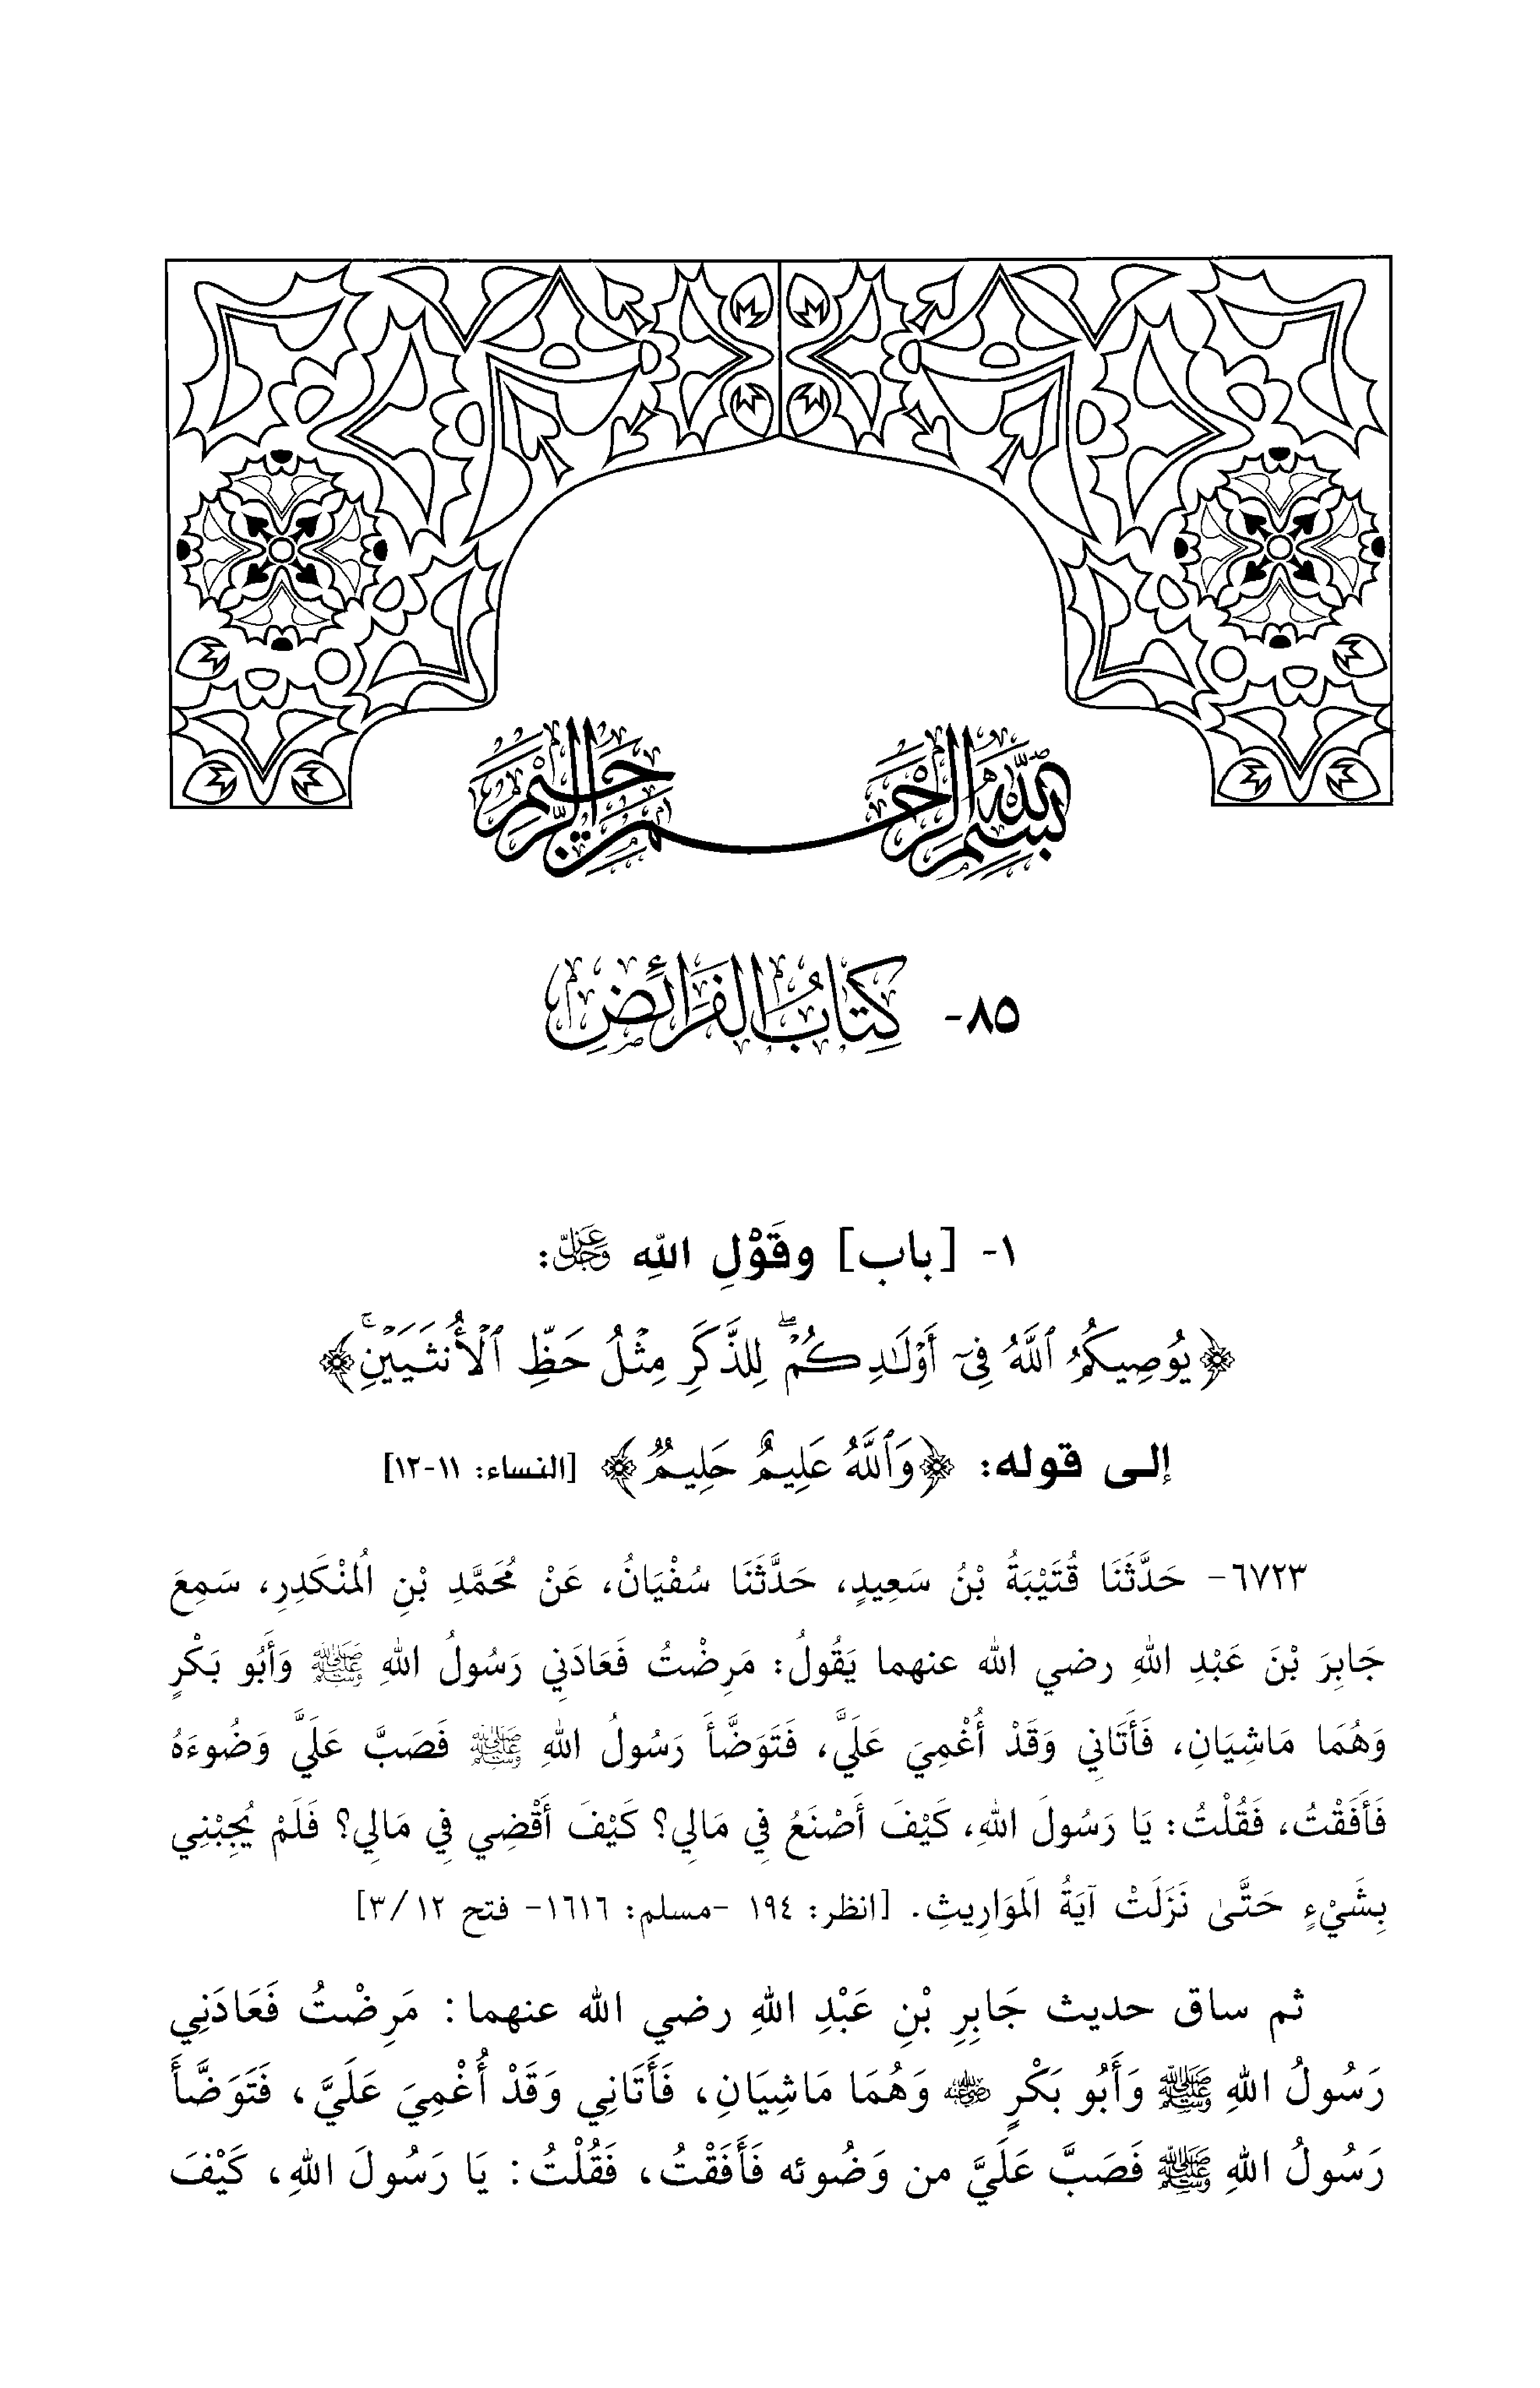 بِسْمِ اللهِ الرَّحْمَنِ الرَّحِيمِ
٨٥- كِتَابُ الفَرَائِضِ
١- [باب] وقَوْلِ اللهِ عَزَّ وَجَلَّ:
﴿يُوصِيكُمُ ٱللَّهُ فِيٓ أَوْلَٰدِكُمْۖ لِلذَّكَرِ مِثْلُ حَظِّ ٱلْأُنثَيَيْنِۚ﴾
إلى قوله: ﴿وَٱللَّهُ عَلِيمٌ حَلِيمٌ﴾ [النساء: ١١-١٢]
٦٧٢٣- حَدَّثَنَا قُتَيْبَةُ بْنُ سَعِيدٍ، حَدَّثَنَا سُفْيَانُ، عَنْ مُحَمَّدِ بْنِ اُلمْنْكَدِرِ، سَمِعَ
جَابِرَ بْنَ عَبْدِ اللهِ رضي الله عنهما يَقُولُ: مَرِضْتُ فَعَادَنِي رَسُولُ اللهِ ﷺ وَأَبُو بَكْرٍ
وَهُمَا مَاشِيَانِ، فَأَتَانِي وَقَدْ أُغْمِيَ عَلَيَّ، فَتَوَضَّأَ رَسُولُ اللهِ ﷺ فَصَبَّ عَلَيَّ وَضُوءَهُ
فَأَفَقْتُ، فَقُلْتُ: يَا رَسُولَ اللهِ، كَيْفَ أَصْنَعُ فِي مَالِي؟ كَيْفَ أَقْضِي فِي مَالِي؟ فَلَمْ يُجِبْنِي
بِشَيْءٍ حَتَّىٰ نَزَلَتْ آيَةُ اَلموَارِيثِ. [انظر: ١٩٤ -مسلم: ١٦١٦- فتح ١٢/٣]
ثم ساق حديث جَابِرِ بْنِ عَبْدِ اللهِ رضي الله عنهما: مَرِضْتُ فَعَادَنِي
رَسُولُ اللهِ ﷺ وَأَبُو بَكْرٍ رضي الله عنه وَهُمَا مَاشِيَانِ، فَأَتَانِي وَقَدْ أُغْمِيَ عَلَيَّ، فَتَوَضَّأَ
رَسُولُ اللهِ ﷺ فَصَبَّ عَلَيَّ من وَضُوئه فَأَفَقْتُ، فَقُلْتُ: يَا رَسُولَ اللهِ، كَيْفَ